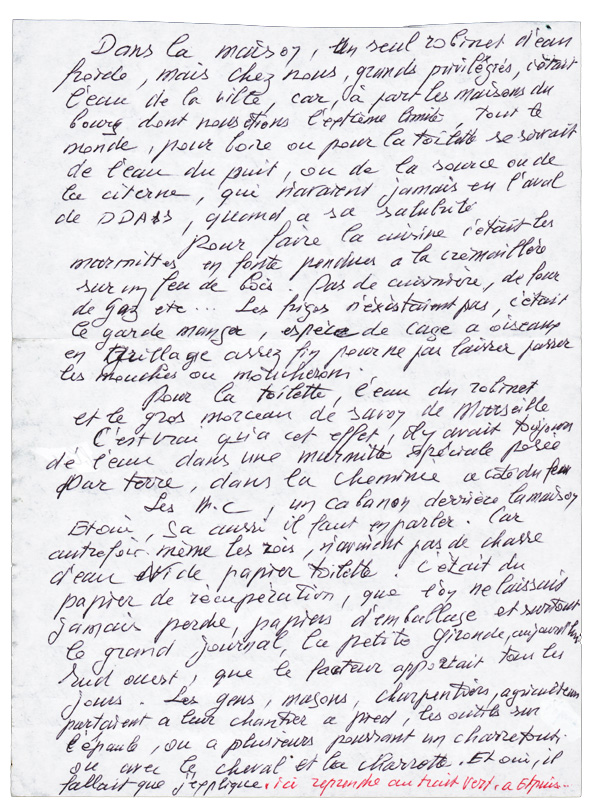 Dans la maison, un seul robinet d'eau
froide, mais chez nous, grands privilégiés, c'était
l'eau de la ville, car, à part les maisons du
bourg dont nous étions l'extrème limite, tout le
monde, pour boire ou pour la toilette se servait
de l'eau du puit, ou de la source ou de
la citerne, qui n'avaient jamais eu l'aval
de DDASS, quand a sa salubrité
Pour faire la cuisine c'était les
marmittes en fonte pendues a la crémaillère
sur un feu de bois. Pas de cuisinière, de four
de gaz etc... Les frigos n'éxistaient pas, c'était
le garde manger, espèce de cage a oiseaux
en grillage assez fin pour ne pas laisser passer
les mouches ou moucherons.
Pour la toilette, l'eau du robinet
et le gros morceau de savon de Marseille
C'est vrai qu'a cet effet, il y avait toujours
de l'eau dans une marmite spéciale posée
par terre, dans la cheminée a côté du feu
Les W.C, un cabanon derrière la maison
Et oui, sa aussi il faut en parler. Car
autrefois même les rois, n'avaient pas de chasse
d'eau ni de papier toilette. C'était du
papier de récupération, que l'on ne laissait
jamais perdre, papiers d'emballage et surtout
le grand journal, la petite Gironde, aujourd'hui
Sud ouest, que le facteur apportait tous les
jours. Les gens, maçons, charpentiers, agriculteurs
partaient a leur chantier a pied, les outils sur
l'épaule, ou a plusieurs poussant un charreton,
ou avec le cheval et la charrette. Et oui, il
fallait que j'explique. ici reprendre au trait vert. a Et puis...